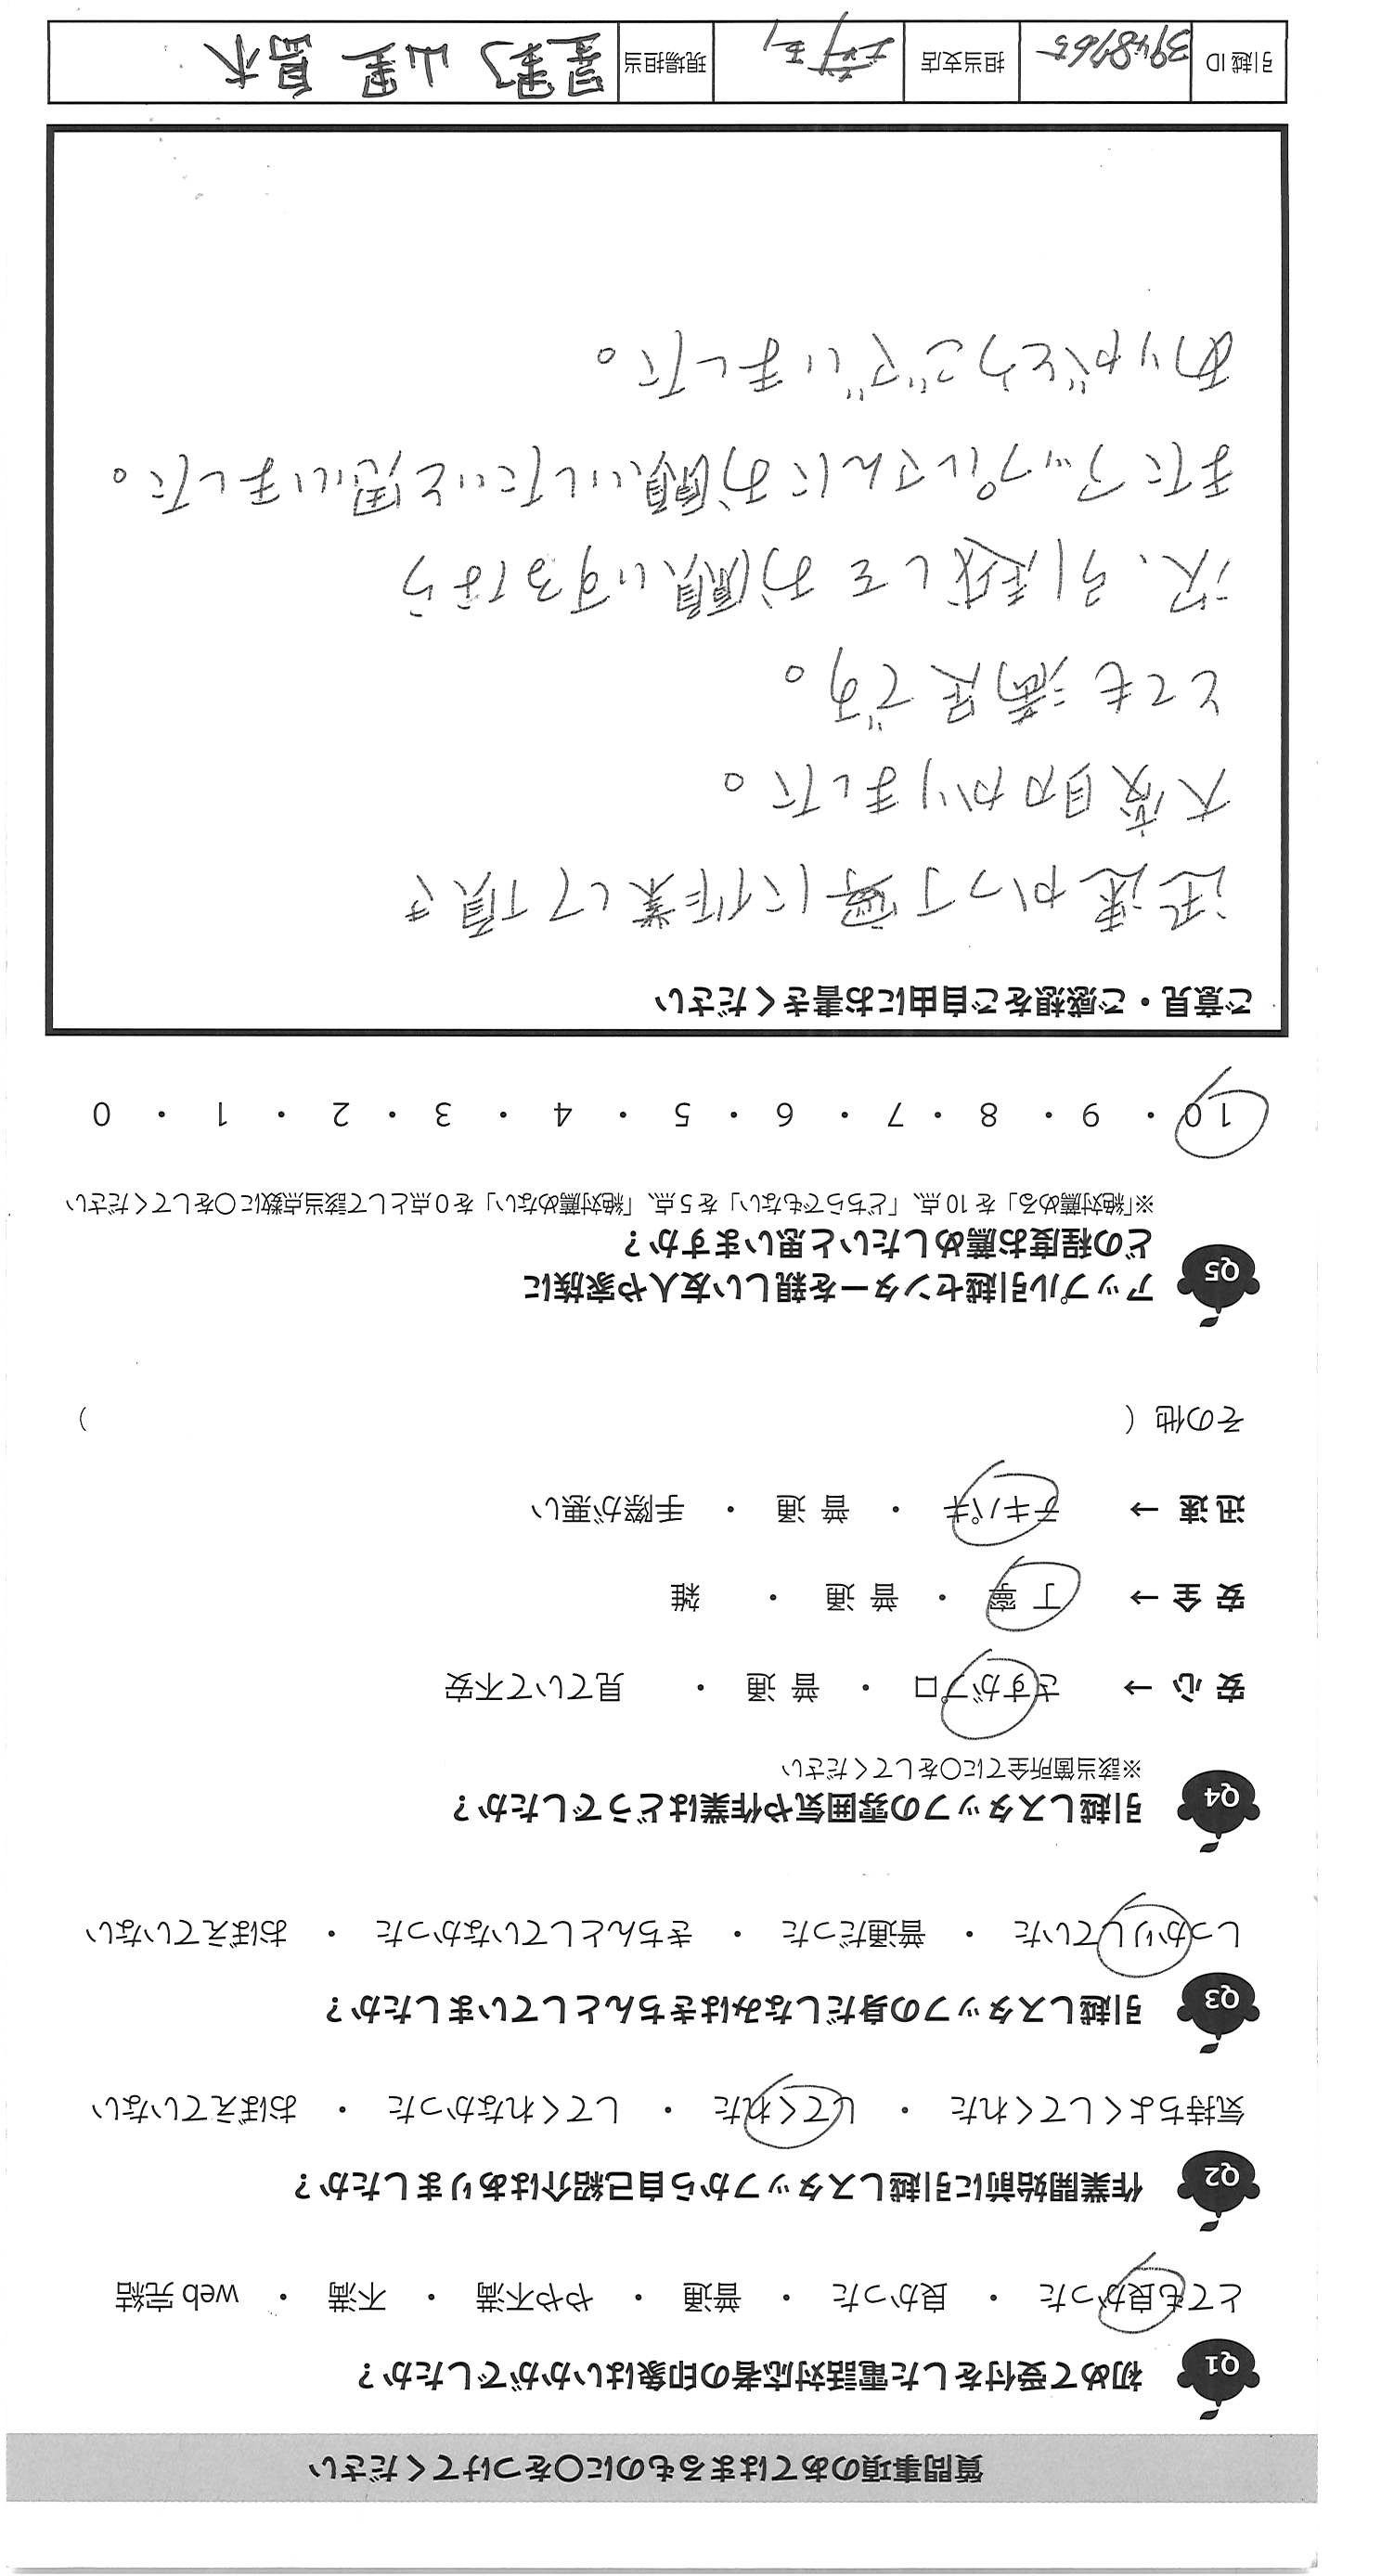 質問事項のあてはまるものに〇をつけてください
Q1 初めて受付をした電話対応者の印象はいかがでしたか？
とても良かった ・ 良かった ・ 普通 ・ やや不満 ・ 不満 ・ web 完結
Q2 作業開始前に引越しスタッフから自己紹介はありましたか？
気持ちよくしてくれた ・ してくれた ・ してくれなかった ・ おぼえていない
Q3 引越しスタッフの身だしなみはきちんとしていましたか？
しっかりしていた ・ 普通だった ・ きちんとしていなかった ・ おぼえていない
Q4 引越しスタッフの雰囲気や作業はどうでしたか？
※該当箇所全てに〇をしてください
安 心 → さすがプロ ・ 普 通 ・ 見ていて不安
安 全 → 丁 寧 ・ 普 通 ・ 雑
迅 速 → テキパキ ・ 普 通 ・ 手際が悪い
その他（ ）
Q5 アップル引越センターを親しい友人や家族に
どの程度お薦めしたいと思いますか？
※「絶対薦める」を 10 点、「どちらでもない」を 5 点、「絶対薦めない」を 0 点として該当点数に〇をしてください
10 ・ 9 ・ 8 ・ 7 ・ 6 ・ 5 ・ 4 ・ 3 ・ 2 ・ 1 ・ 0
ご意見・ご感想をご自由にお書きください
迅速かつ丁寧に作業して頂き
大変助かりました。
とても満足です。
次、引越しをお願いするなら
またアップルさんにお願いしたいと思いました。
ありがとうございました。
引越 ID 担当支店 現場担当 星野 山里 島木